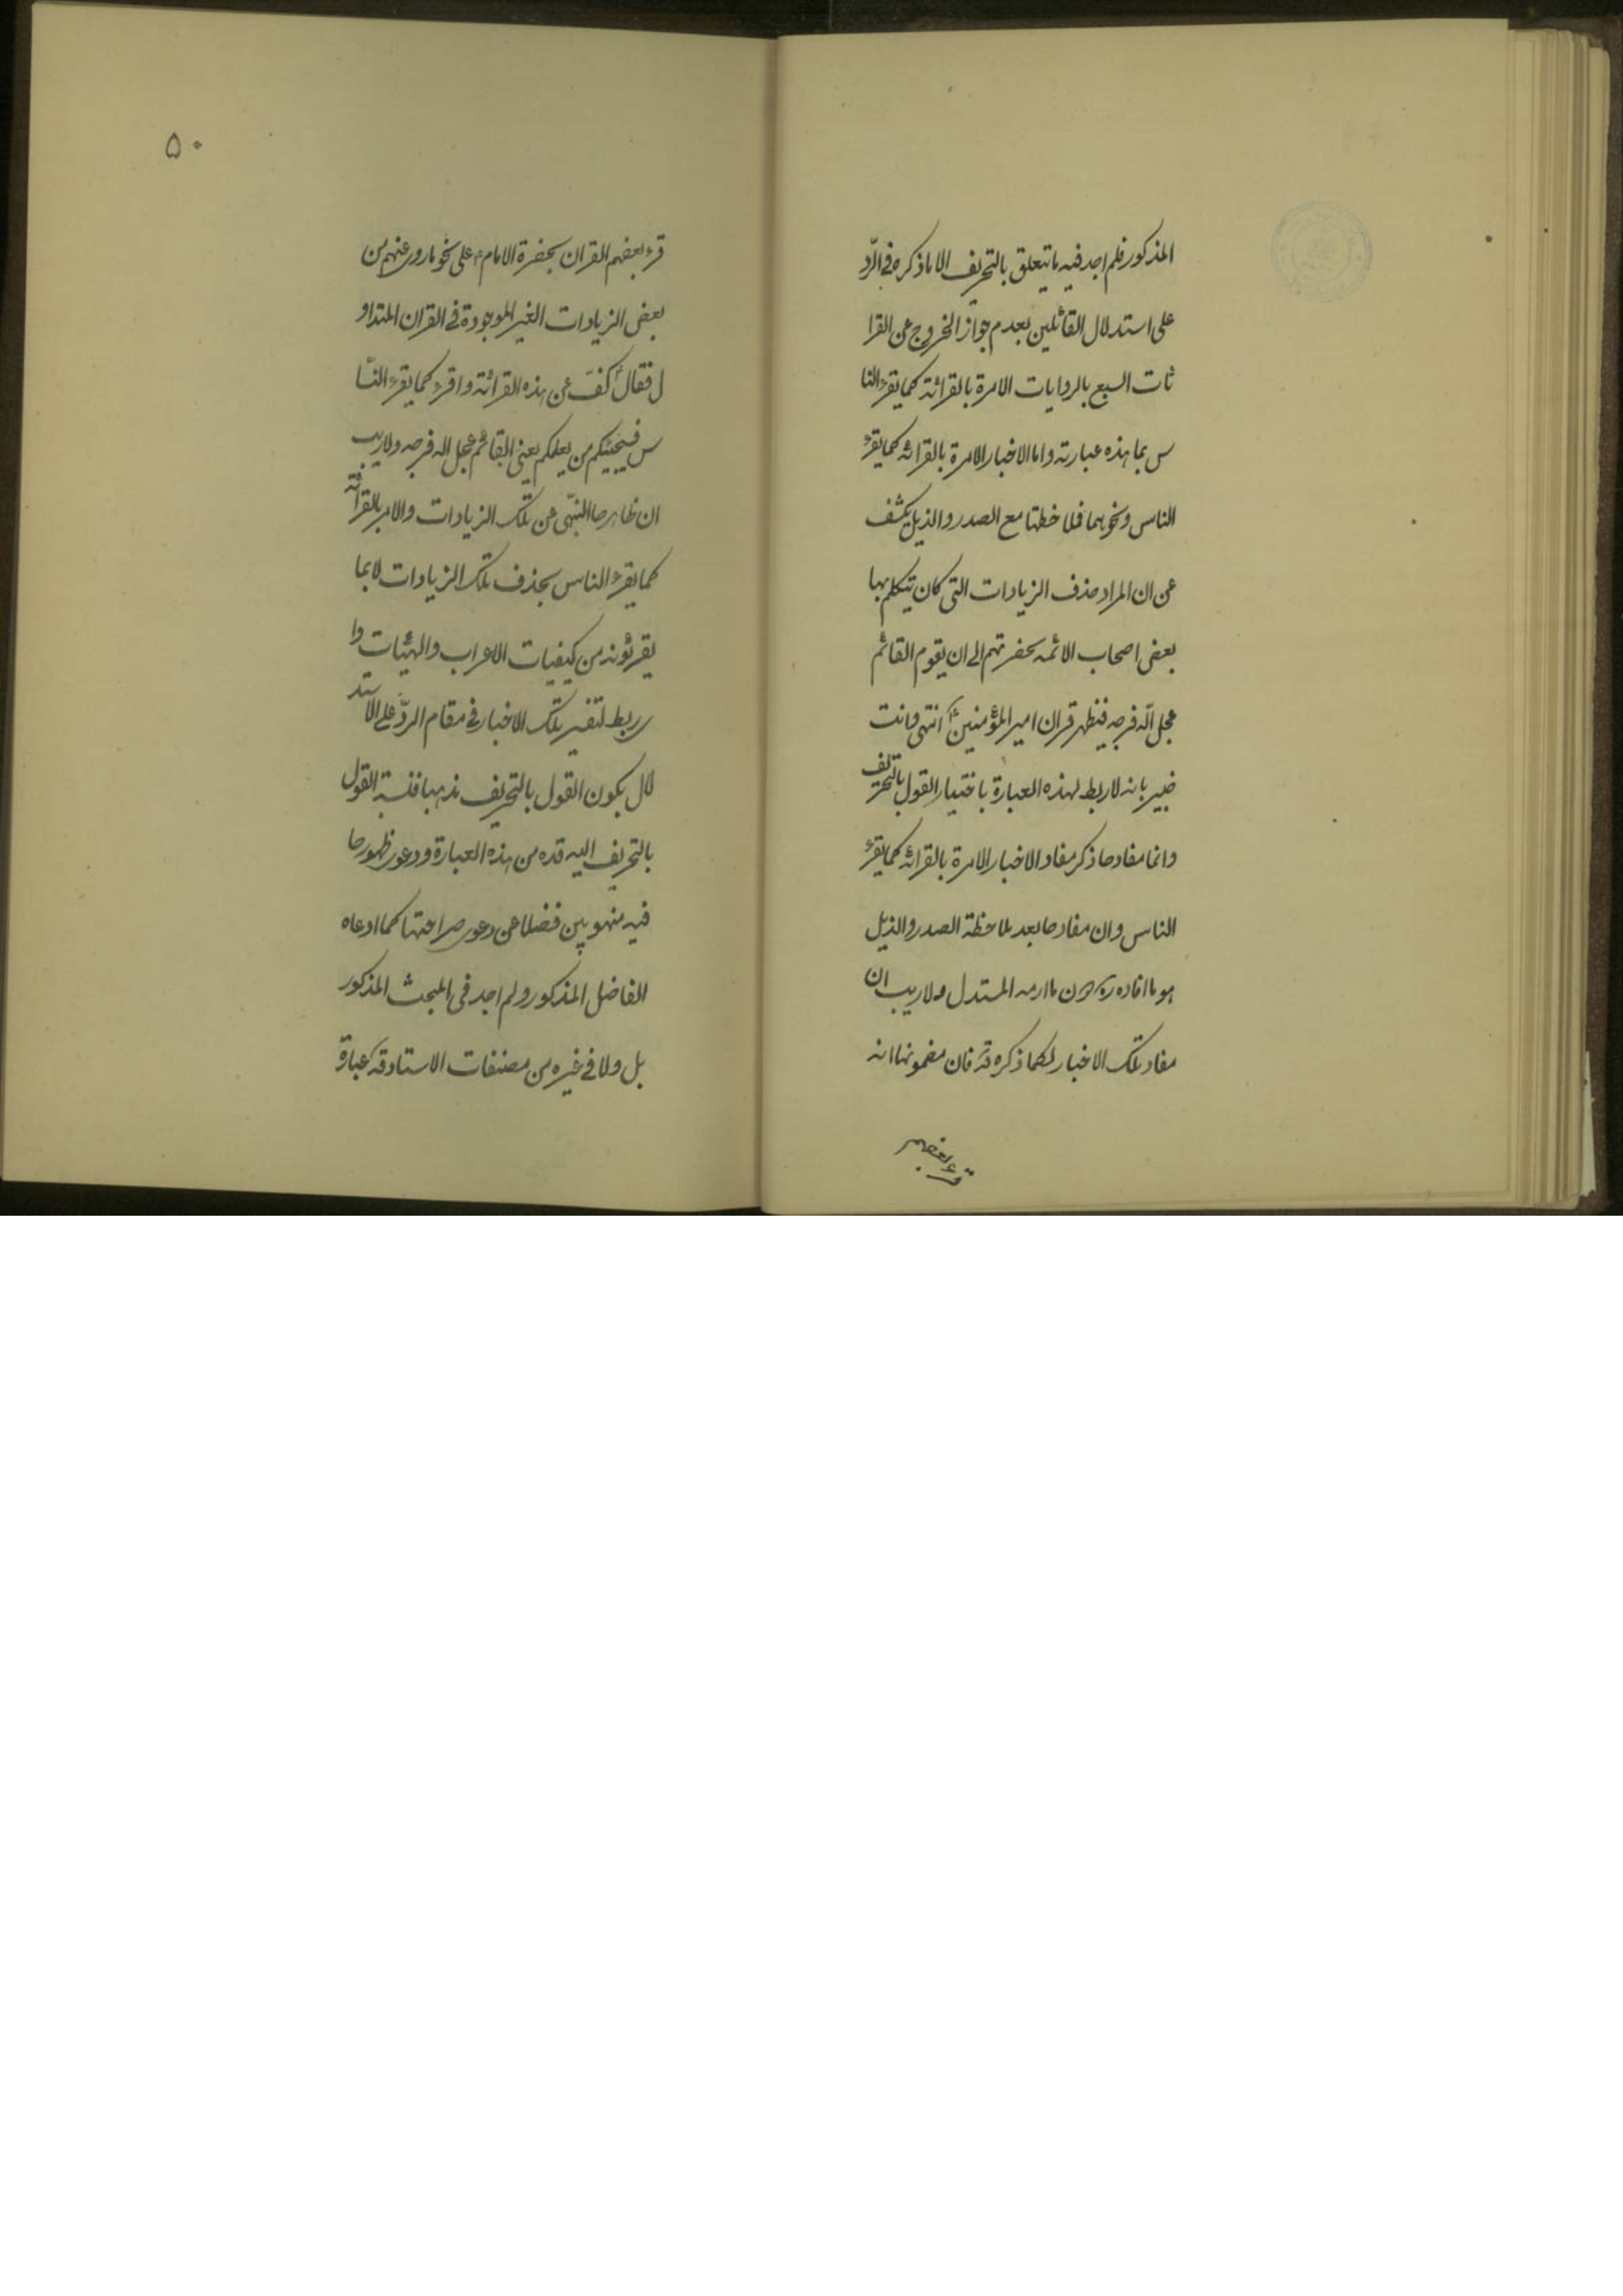 المذكور فلم اجد فيه ما يتعلق بالتحريف الا ما ذكره فی الرّد
علی استدلال القائلين بعدم جواز الخروج عن القرا
ئات السبع بالروايات الامرة بالقرائة كما يقرء النا
س بما هذه عبارته واما الاخبار الامرة بالقرائه كما يقرء
الناس ونحوهما فملاحظتها مع الصدر والذيل يكشف
عن ان المراد حذف الزيادات التی كان يتكلم بها
بعض اصحاب الائمه بحضرتهم الی ان يقوم القائم
عجل الله فرجه فيظهر قران امير المؤمنينؑ انتهی وانت
خبير بانه لا ربط لهذه العبارة باختيار القول بالتحريف
وانما مفادها ذكر مفاد الاخبار الامرة بالقرائه كما يقرء
الناس وان مفادها بعد ملاحظة الصدر والذيل
هو ما افاده ره دون ما ارمه المستدل ولا ريب ان
مفاد تلك الاخبار لكما ذكره قده فان مضمونها انه
قرء بعضهم
۵۰
قرء بعضهم القران بحضرة الامام ع علی نحو ما روی عنهم من
بعض الزيادات الغير الموجودة فی القران المتداو
ل فقالؑ كفّ عن هذه القرائة واقرء كما يقرء النّا
س فيجيئكم من يعلمكم يعنی القائم عجل الله فرجه ولا ريب
ان ظاهرها النّهی عن تلك الزيادات والامر بالقرائة
كما يقرء الناس بحذف تلك الزيادات لا بما
يقرئونه من كيفيات الاعراب والهيئات وا
ی ربط لتفسير تلك الاخبار فی مقام الردّ علی الاستد
لال بكون القول بالتحريف مذهبا فنسبة القول
بالتحريف اليه قده من هذه العبارة ودعوی ظهورها
فيه منهو بين فضلا عن دعوی صراحتها كما ادعاه
الفاضل المذكور ولم اجد فی المبحث المذكور
بل ولا فی غيره من مصنفات الاستاد قده عبارة